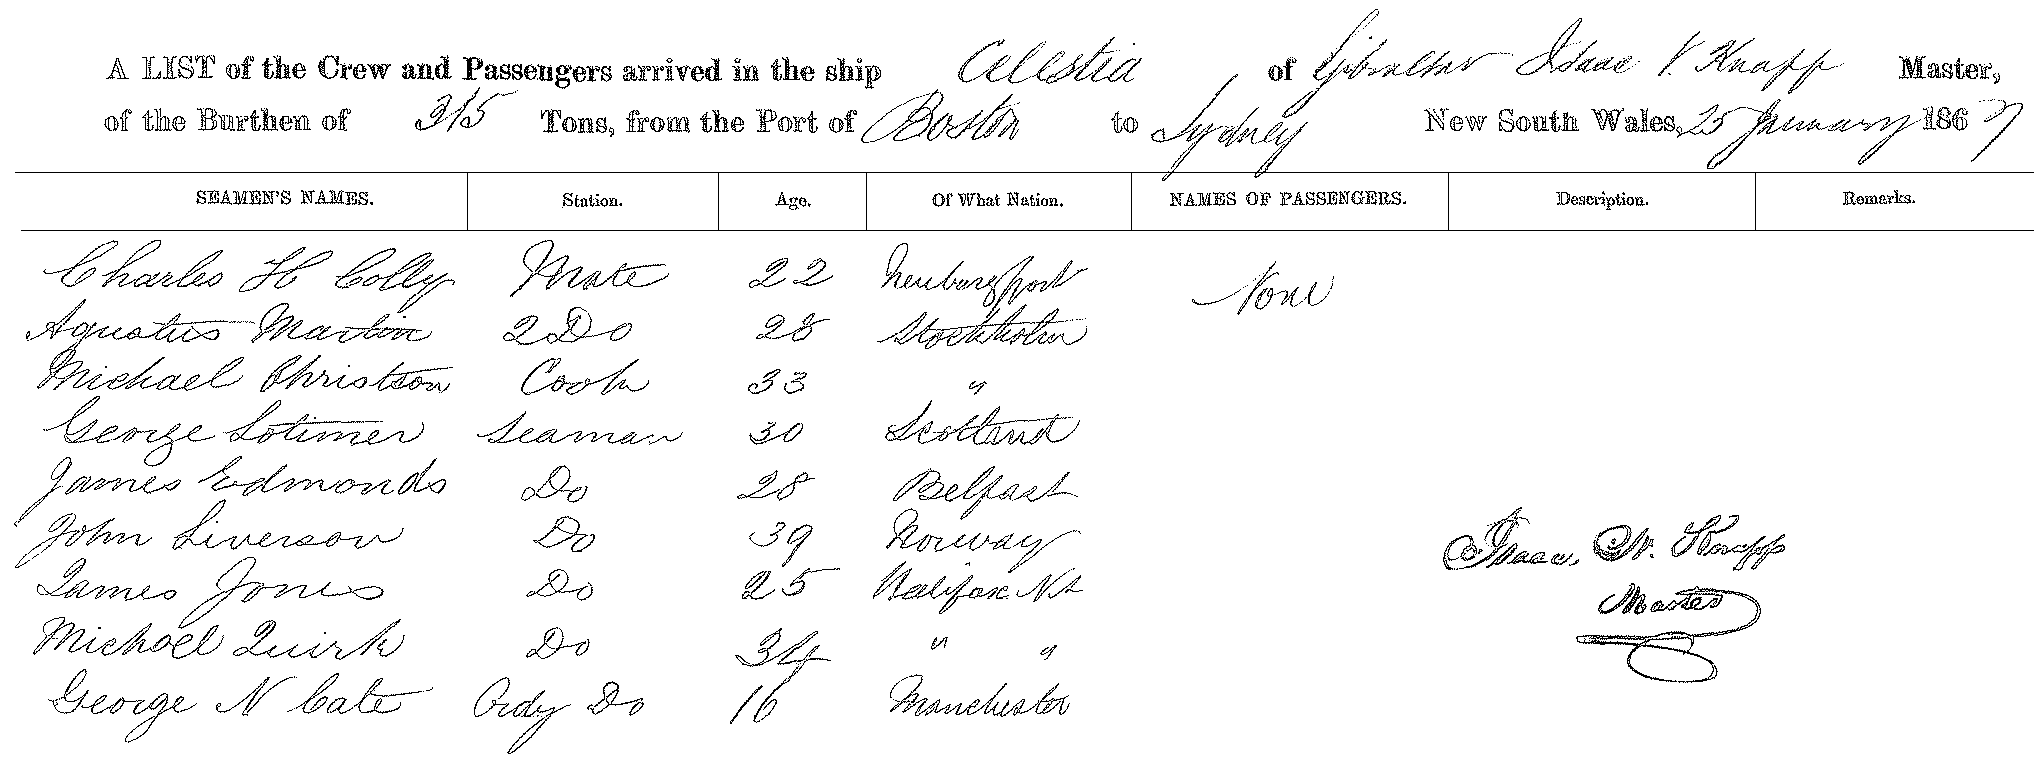 A LIST of the Crew and Passengers arrived in the ship Celestia of Gibraltar Isaac V. Knapp Master,
of the Burthen of 315 Tons, from the Port of Boston to Sydney New South Wales, 25 January 1867
SEAMEN'S NAMES. Station. Age. Of What Nation. NAMES OF PASSENGERS. Description. Remarks.
Charles H Colly Mate 22 Newburyport None
Agustus Martin 2 Do 28 Stockholm
Michael Christson Cook 33 "
George Lotimer Seaman 30 Scotland
James Edmonds Do 28 Belfast
John Siverson Do 39 Norway
Isaac W. Knapp
James Jones Do 25 Halifax NS
Master
Michael Quirk Do 34 " "
George N Cate Ordy Do 16 Manchester